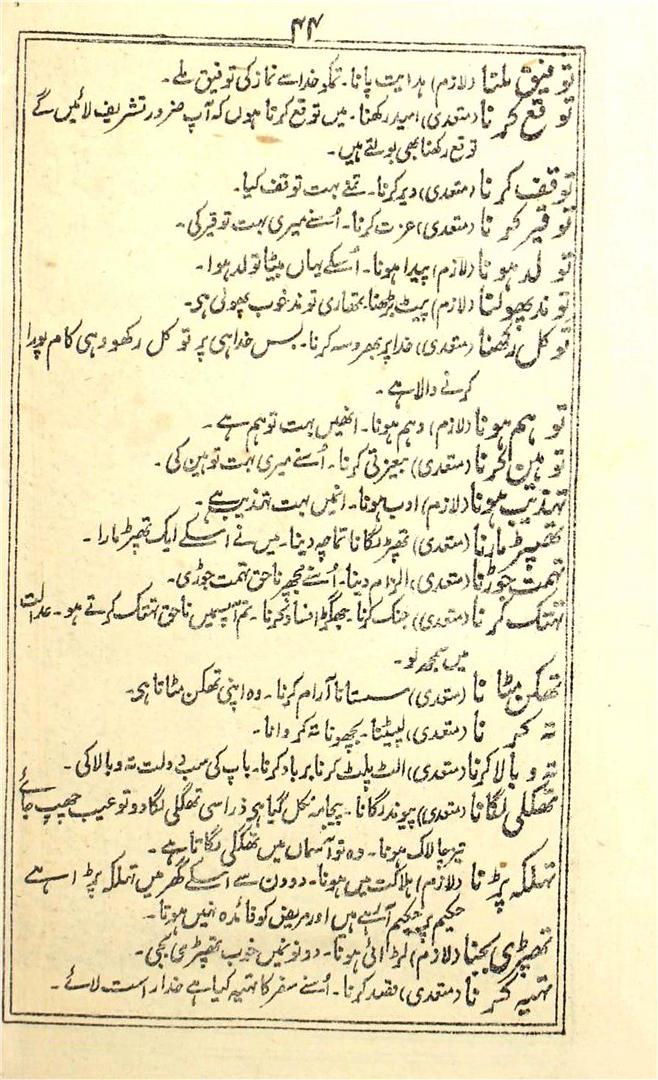 ۴۴
توفیق ملنا (لازم) ہدایت پانا۔ تمکو خدا سے نماز کی توفیق ملے۔
توقع کرنا (متعدی) امید رکھنا۔ میں توقع کرتا ہوں کہ آپ ضرور تشریف لائیں گے
توقع رکھنا بھی بولتے ہیں۔
توقف کرنا (متعدی) دیر کرنا۔ تمنے بہت توقف کیا۔
توقیر کرنا (متعدی) عزت کرنا۔ اُسنے میری بہت توقیر کی۔
تولد ہونا (لازم) پیدا ہونا۔ اُسکے یہاں بیٹا تولد ہوا۔
توند پھولنا (لازم) پیٹ بڑھنا۔ تمھاری توند خوب پھولی ہی۔
توکل رکھنا (متعدی) خدا پر بھروسہ کرنا۔ بس خدا ہی پر توکل رکھو وہی کام پورا
کرنے والا ہے۔
توہم ہونا (لازم) وہم ہونا۔ انھیں بہت توہم ہے۔
توہین کرنا (متعدی) بیعزتی کرنا۔ اُسنے میری بہت توہین کی۔
تہذیب ہونا (لازم) ادب ہونا۔ انمیں بہت تہذیب ہے۔
تھپڑ مارنا (متعدی) تھپڑ لگانا تماچہ دینا۔ میں نے اُسکے ایک تھپڑ مارا۔
تہمت جوڑنا (متعدی) الزام دینا۔ اُسنے مجھپر ناحق تہمت جوڑی۔
تہتک کرنا (متعدی) جنگ کرنا۔ جھگڑا فساد کرنا۔ تم آپسمیں ناحق تہتک کرتے ہو۔ عدالت
میں سمجھ لو۔
تھکن مٹانا (متعدی) سستانا آرام کرنا۔ وہ اپنی تھکن مٹاتا ہی۔
تہ کرنا (متعدی) لپیٹنا۔ بچھونا تہ کروانا۔
تہ و بالا کرنا (متعدی) الٹ پلٹ کرنا برباد کرنا۔ باپ کی سب دولت تہ و بالا کی۔
تھگلی لگانا (متعدی) پیوند لگانا۔ پیجامہ نکل گیا ہی ذرا سی تھگلی لگا دو تو عیب چھپ جائے
تیز چالاک ہونا۔ وہ تو آسماں میں تھگلی لگاتا ہے۔
تہلکہ پڑنا (لازم) ہلاکت میں ہونا۔ دو دن سے اسکے گھر میں تہلکہ پڑا ہے
حکیم پر حکیم آتے ہیں اور مریض کو فائدہ نہیں ہوتا۔
تھپڑی بجنا (لازم) لڑائی ہونا۔ دونومیں خوب تھپڑی بجی۔
تہیہ کرنا (متعدی) قصد کرنا۔ اُسنے سفر کا تہیہ کیا ہے خدا راست لائے۔